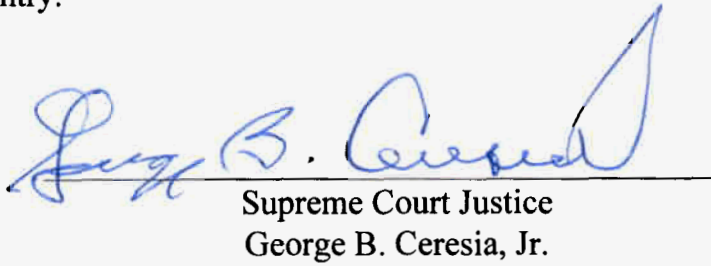 ntry.
George B. Ceresia
Supreme Court Justice
George B. Ceresia, Jr.